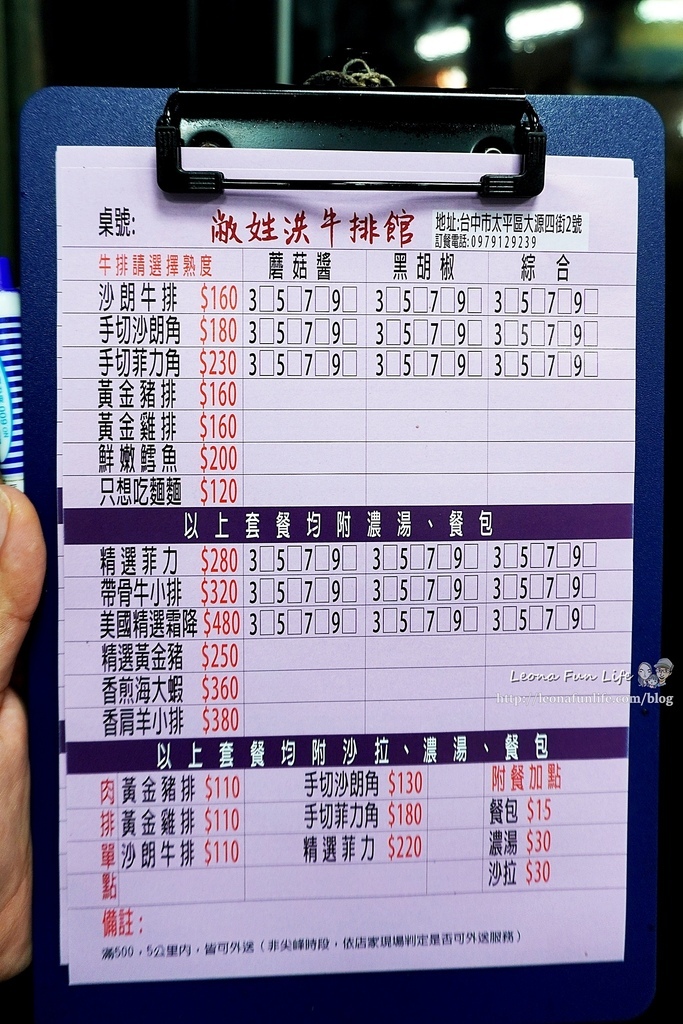 桌號: 敝姓洪牛排館 地址:台中市太平區大源四街2號
訂餐電話:0979129239
牛排請選擇熟度 蘑菇醬 黑胡椒 綜合
沙朗牛排 $160 3□5□7□9□ 3□5□7□9□ 3□5□7□9□
手切沙朗角 $180 3□5□7□9□ 3□5□7□9□ 3□5□7□9□
手切菲力角 $230 3□5□7□9□ 3□5□7□9□ 3□5□7□9□
黃金豬排 $160
黃金雞排 $160
鮮嫩鱈魚 $200
只想吃麵麵 $120
以上套餐均附濃湯、餐包
精選菲力 $280 3□5□7□9□ 3□5□7□9□ 3□5□7□9□
帶骨牛小排 $320 3□5□7□9□ 3□5□7□9□ 3□5□7□9□
美國精選霜降 $480 3□5□7□9□ 3□5□7□9□ 3□5□7□9□
精選黃金豬 $250
香煎海大蝦 $360
香肩羊小排 $380
以上套餐均附沙拉、濃湯、餐包
肉排單點
黃金豬排 $110 手切沙朗角 $130 附餐加點
黃金雞排 $110 手切菲力角 $180 餐包 $15
沙朗牛排 $110 精選菲力 $220 濃湯 $30
沙拉 $30
備註:
滿500,5公里內,皆可外送(非尖峰時段,依店家現場判定是否可外送服務)
Leona Fun Life
http://leonafunlife.com/blog